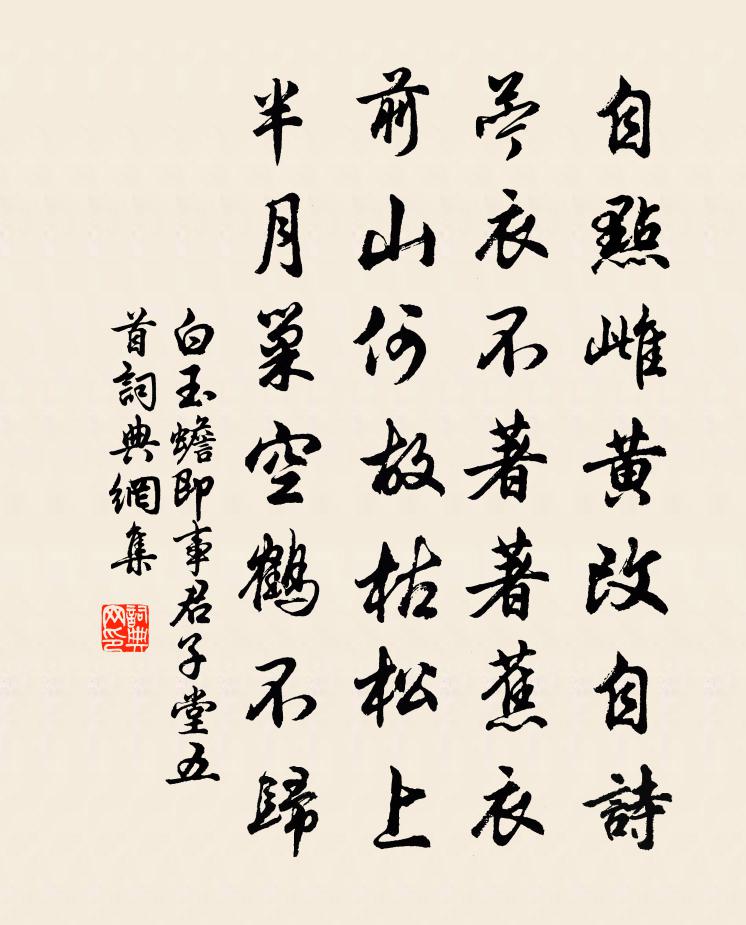 自點雌黄改自詩
苧衣不著著蕉衣
前山何故枯松上
半月巢空鶴不歸
白玉蟾即事君子堂五
首詞典網集
詞典网印